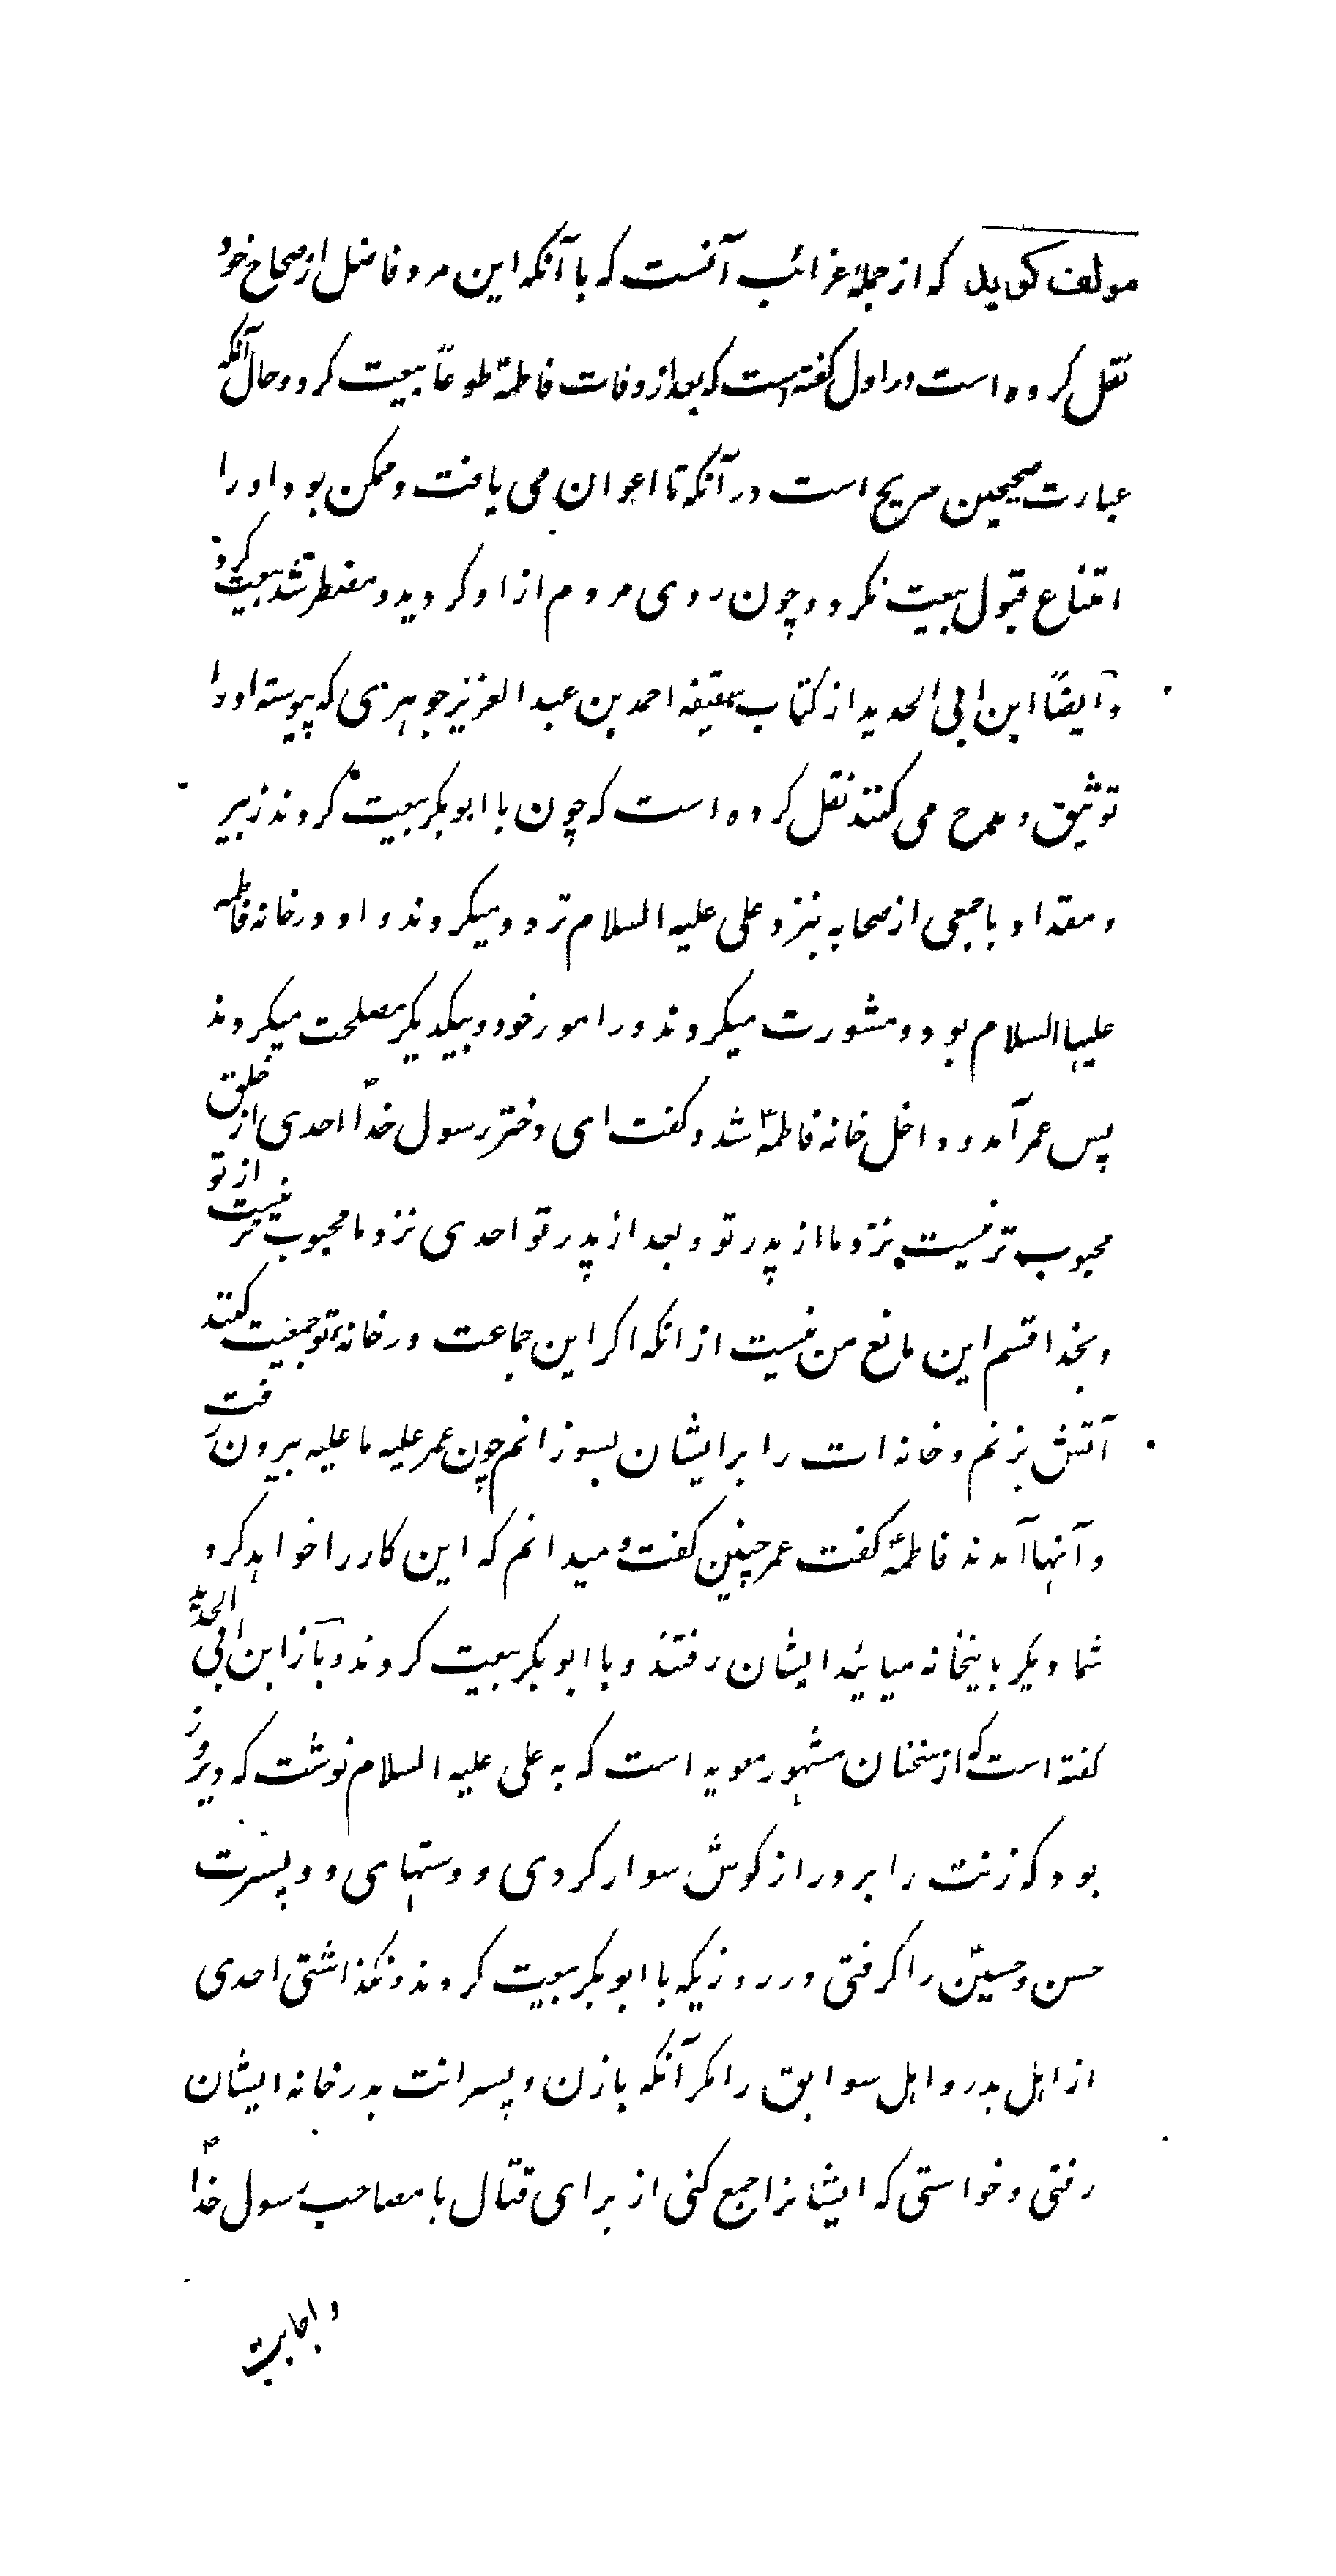 مولف کوید که از جملهٔ غرائب آنست که با آنکه این مرد فاضل از صحاح خود
نقل کرده است در اول گفته است که بعد از وفات فاطمهٔ طوعاً بیعت کرد و حال آنکه
عبارت صحیحین صریح است در آنکه تا اعوان می یافت و ممکن بود او را
امتناع قبول بیعت نکرد و چون روی مردم از او کردید و مضطر شد بیعت کرد
و ایضاً ابن ابی الحدید از کتاب سقیفه احمد بن عبد العزیز جوهری که پیوسته او را
توثیق و مدح می کنند نقل کرده است که چون با ابو بکر بیعت کردند زبیر
و مقداد با جمعی از صحابه بنزد علی علیه السلام تردد میکردند و او در خانه فاطمه
علیها السلام بود و مشورت میکردند در امور خود و بیکدیکر مصلحت میکردند
پس عمر آمد و داخل خانه فاطمهٔ شد و کفت ای دختر رسول خداؐ احدی از خلق
محبوب تر نیست بنزد ما از پدر تو و بعد از پدر تو احدی نزد ما محبوب تر نیست از تو
و بخدا قسم این مانع من نیست از انکه اکر این جماعت در خانهٔ تو جمعیت کنند
آتش بزنم و خانه ات را بر ایشان بسوزانم چون عمر علیه ما علیه بیرون رفت
و آنها آمدند فاطمهٔ کفت عمر چنین کفت و میدانم که این کار را خواهد کرد
شما دیکر باینخانه میائید ایشان رفتند و با ابو بکر بیعت کردند و باز ابن ابی الحدید
کفته است که از سخنان مشهور معویه است که به علی علیه السلام نوشت که دیروز
بود که زنت را بر دراز کوش سوار کردی و دستهای دو پسرت
حسن و حسینؑ را کرفتی در روزیکه با ابو بکر بیعت کردند و نکذاشتی احدی
از اهل بدر و اهل سوابق را مکر آنکه با زن و پسرانت بدر خانه ایشان
رفتی و خواستی که ایشانرا جمع کنی از برای قتال با مصاحب رسول خداؐ
و اجابت